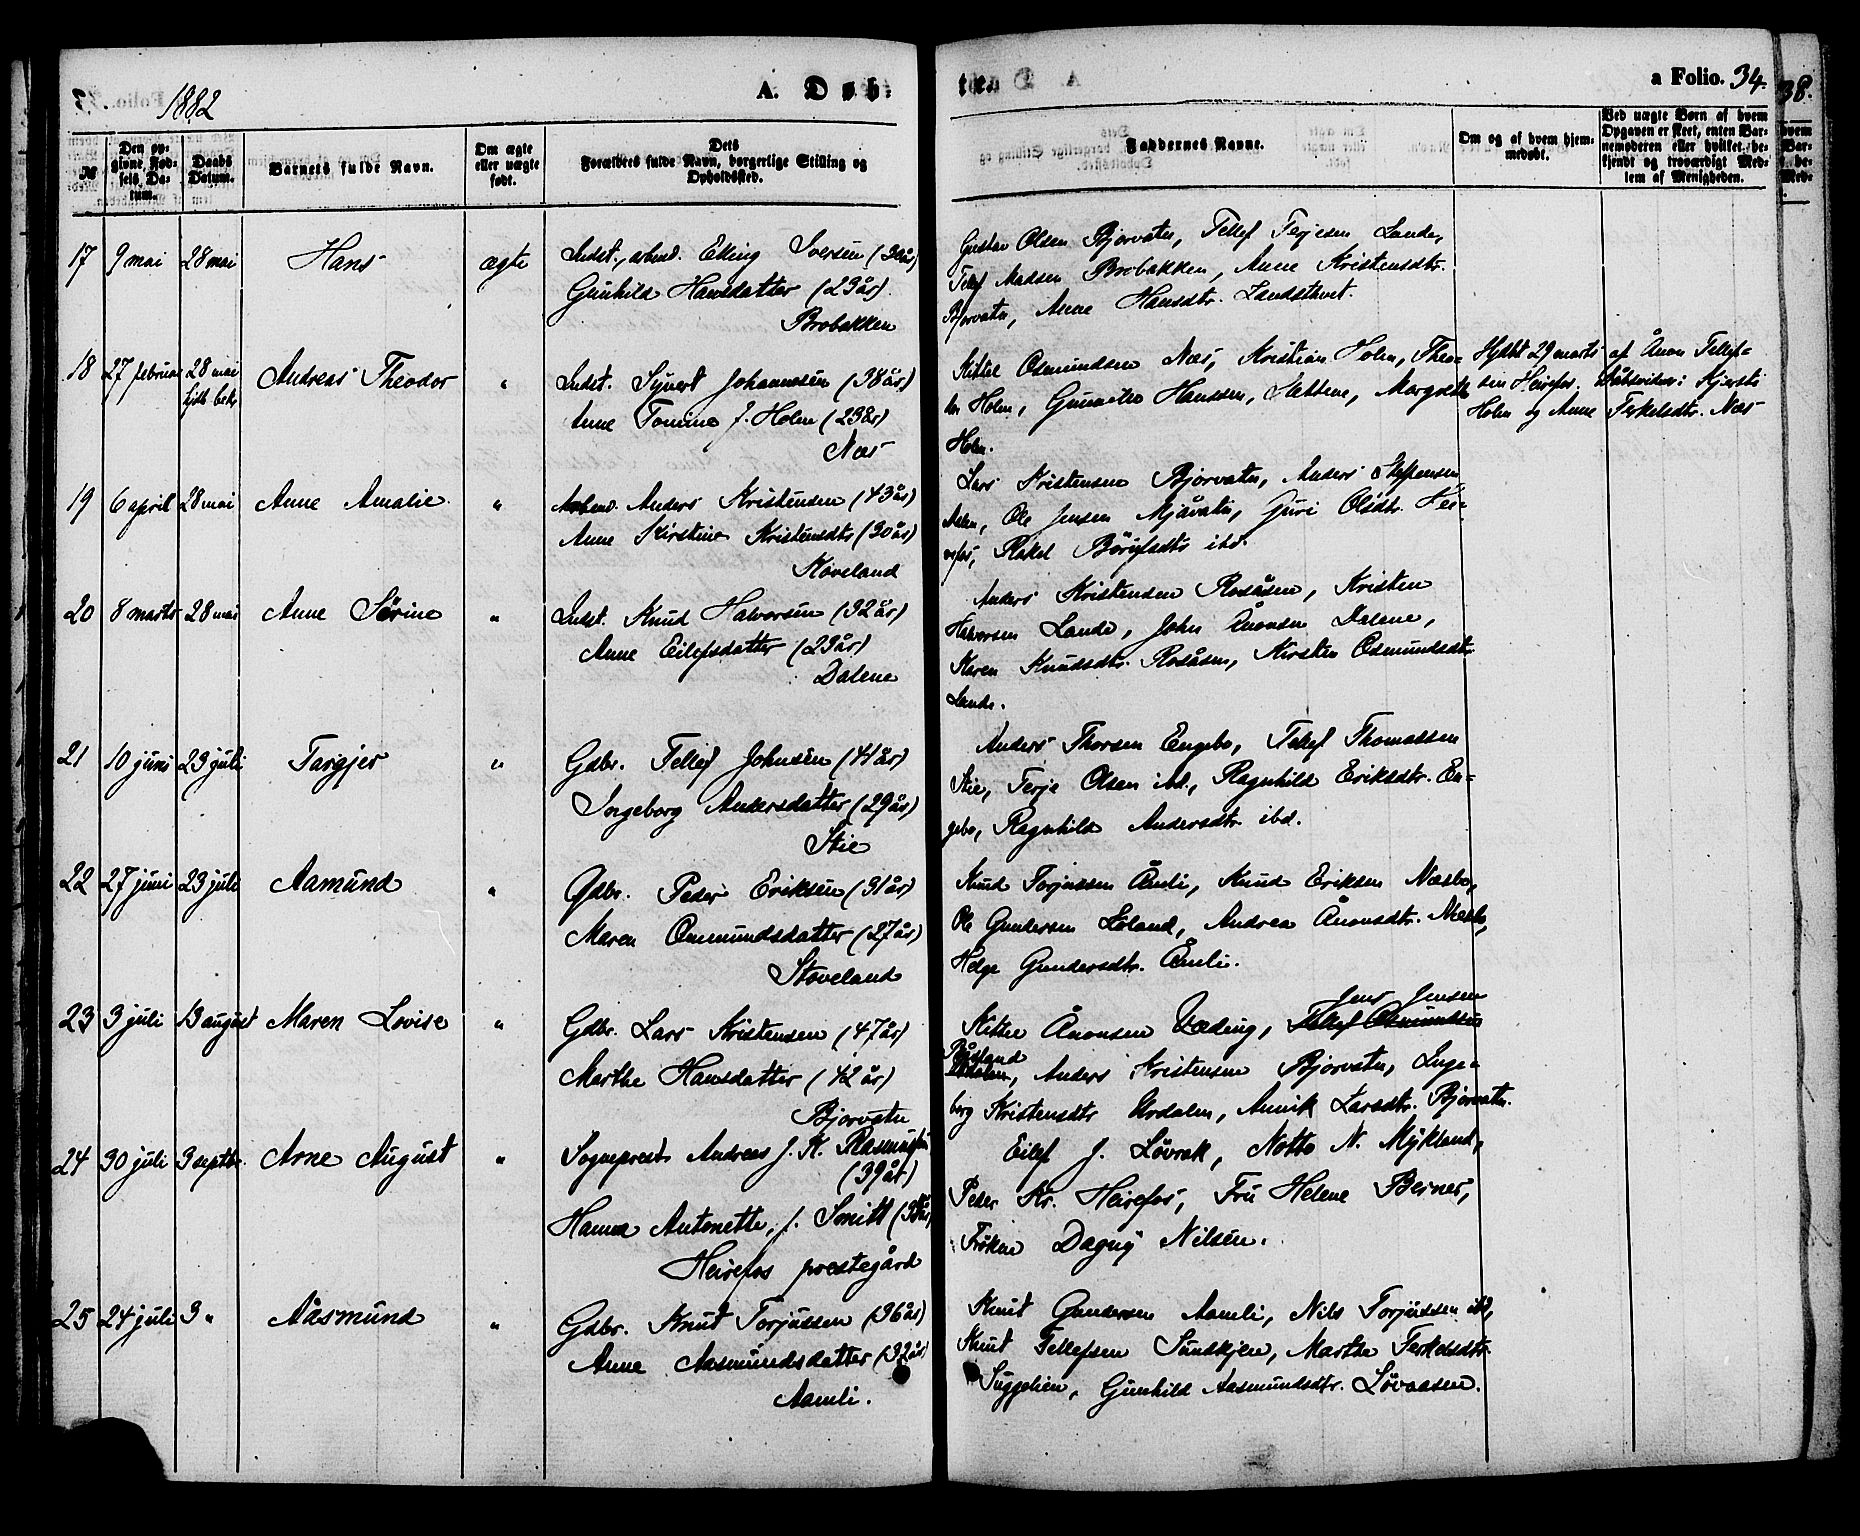 1882
A. Døb-
te.
a Folio. 34.
38.
№
Den opgivne Fødsels Datum.
Daabs Datum.
Barnets fulde Navn.
Om ægte eller uægte født.
Dets Forældres fulde Navn, borgerlige Stilling og Opholdssted.
Faddernes Navne.
Om og af hvem hjemmedøbt.
Ved uægte Børn af hvem Opgaven er skeet, enten Barnemoderen eller hvilket bekjendt og troværdigt Medlem af Menigheden.
17 9 mai 28 mai Hans ægte Indst., arbeid. Elling Iversen (30 år)
Gunhild Hansdatter (23 år)
Brobakken
Gustav Olsen Bjorvatn, Tellef Terjesen Lande,
Tellef Madsen Brobakken, Anne Kristensdtr.
Bjorvatn, Anne Hansdtr. Landsthvet.
18 27 februar 28 mai Andreas Theodor " Indst. Synert Johannesen (38 år)
Anne Tomine f. Holm (23 år)
Næs
Kittel Osmundsen Næs, Kristian Holm, Theo-
dor Holm, Hanssen, Margrethe
Holm.
Hjdbt 29 marts af Ånon Tellef-
sen Heirefos. Dåbsvidner: Kjersti
Holm og Anne Terkelsdtr. Næs
19 6 april 28 mai Anne Amalie " Arbeid. Anders Kristensen (43 år)
Anne Kirstine Kristensdtr (30 år)
Koveland
Lars Kristensen Bjorvatn, Anders Steffensen
Ole Jensen Mjåvatn, Guri Olsdtr. Hei-
refos, Rakel ibd.
20 8 marts 28 mai Anne Sørine " Indst. Knud Halvorsen (32 år)
Anne Eilefsdatter (23 år)
Dalene
Anders Kristensen Rosåsen, Kristen
Halvorsen Lande, John Ånonsen Dalene,
Karen Knudsdtr. Rosåsen, Kirsten Osmundsdtr.
Lande.
21 10 juni 23 juli Targjer " Gdbr. Tellef Johnsen (41 år)
Ingeborg Andersdatter (29 år)
Stie
Anders Thorsen Engebo, Tellef Thomassen
Stie, Terje Olsen ibd., Ragnhild Eriksdtr. En-
gebo, Ragnhild Andersdtr. ibd.
22 27 juni 23 juli Aamund " Gdbr. Peder Eriksen (31 år)
Maren Osmundsdatter (27 år)
Stoveland
Knud Torjussen Åmli, Knud Eriksen Næsbø,
Ole Gundersen Eoland, Andrea Ånonsdtr. Næsbø,
Helge Gundersdtr. Åmli.
23 3 juli 13 august Maren Lovise " Gdbr. Lars Kristensen (47 år)
Marthe Hansdatter (42 år)
Bjorvatn
Jens Jensen
Kittel Ånonsen Væding, Tellef Osmundsen
Anders Kristensen Bjorvatn, Inge-
borg Kristensdtr Urdalen, Annik Larsdtr. Bjorvatn.
24 30 juli 3 septbr. Arne August " Sogneprest Andreas J. K. Rasmussen
(39 år)
Hanna Antonette, f. Smitt
Heirefos prestegård
Eilef J. Løvrak, Notto N. Mykland,
Peder Kr. Heirefos, Fru Helene Berner,
Frøken Dagny Nilsen.
25 24 juli 3 " Aasmund " Gdbr. Knut Torjussen (36 år)
Anne Aasmundsdatter (32 år)
Aamli.
Knut Gundersen Aamli, Nils Torjussen ibd,
Knut Tellefsen Sundkjen, Marthe Terkelsdtr.
Suggelien, Gunhild Aasmundsdtr. Løvaasen.